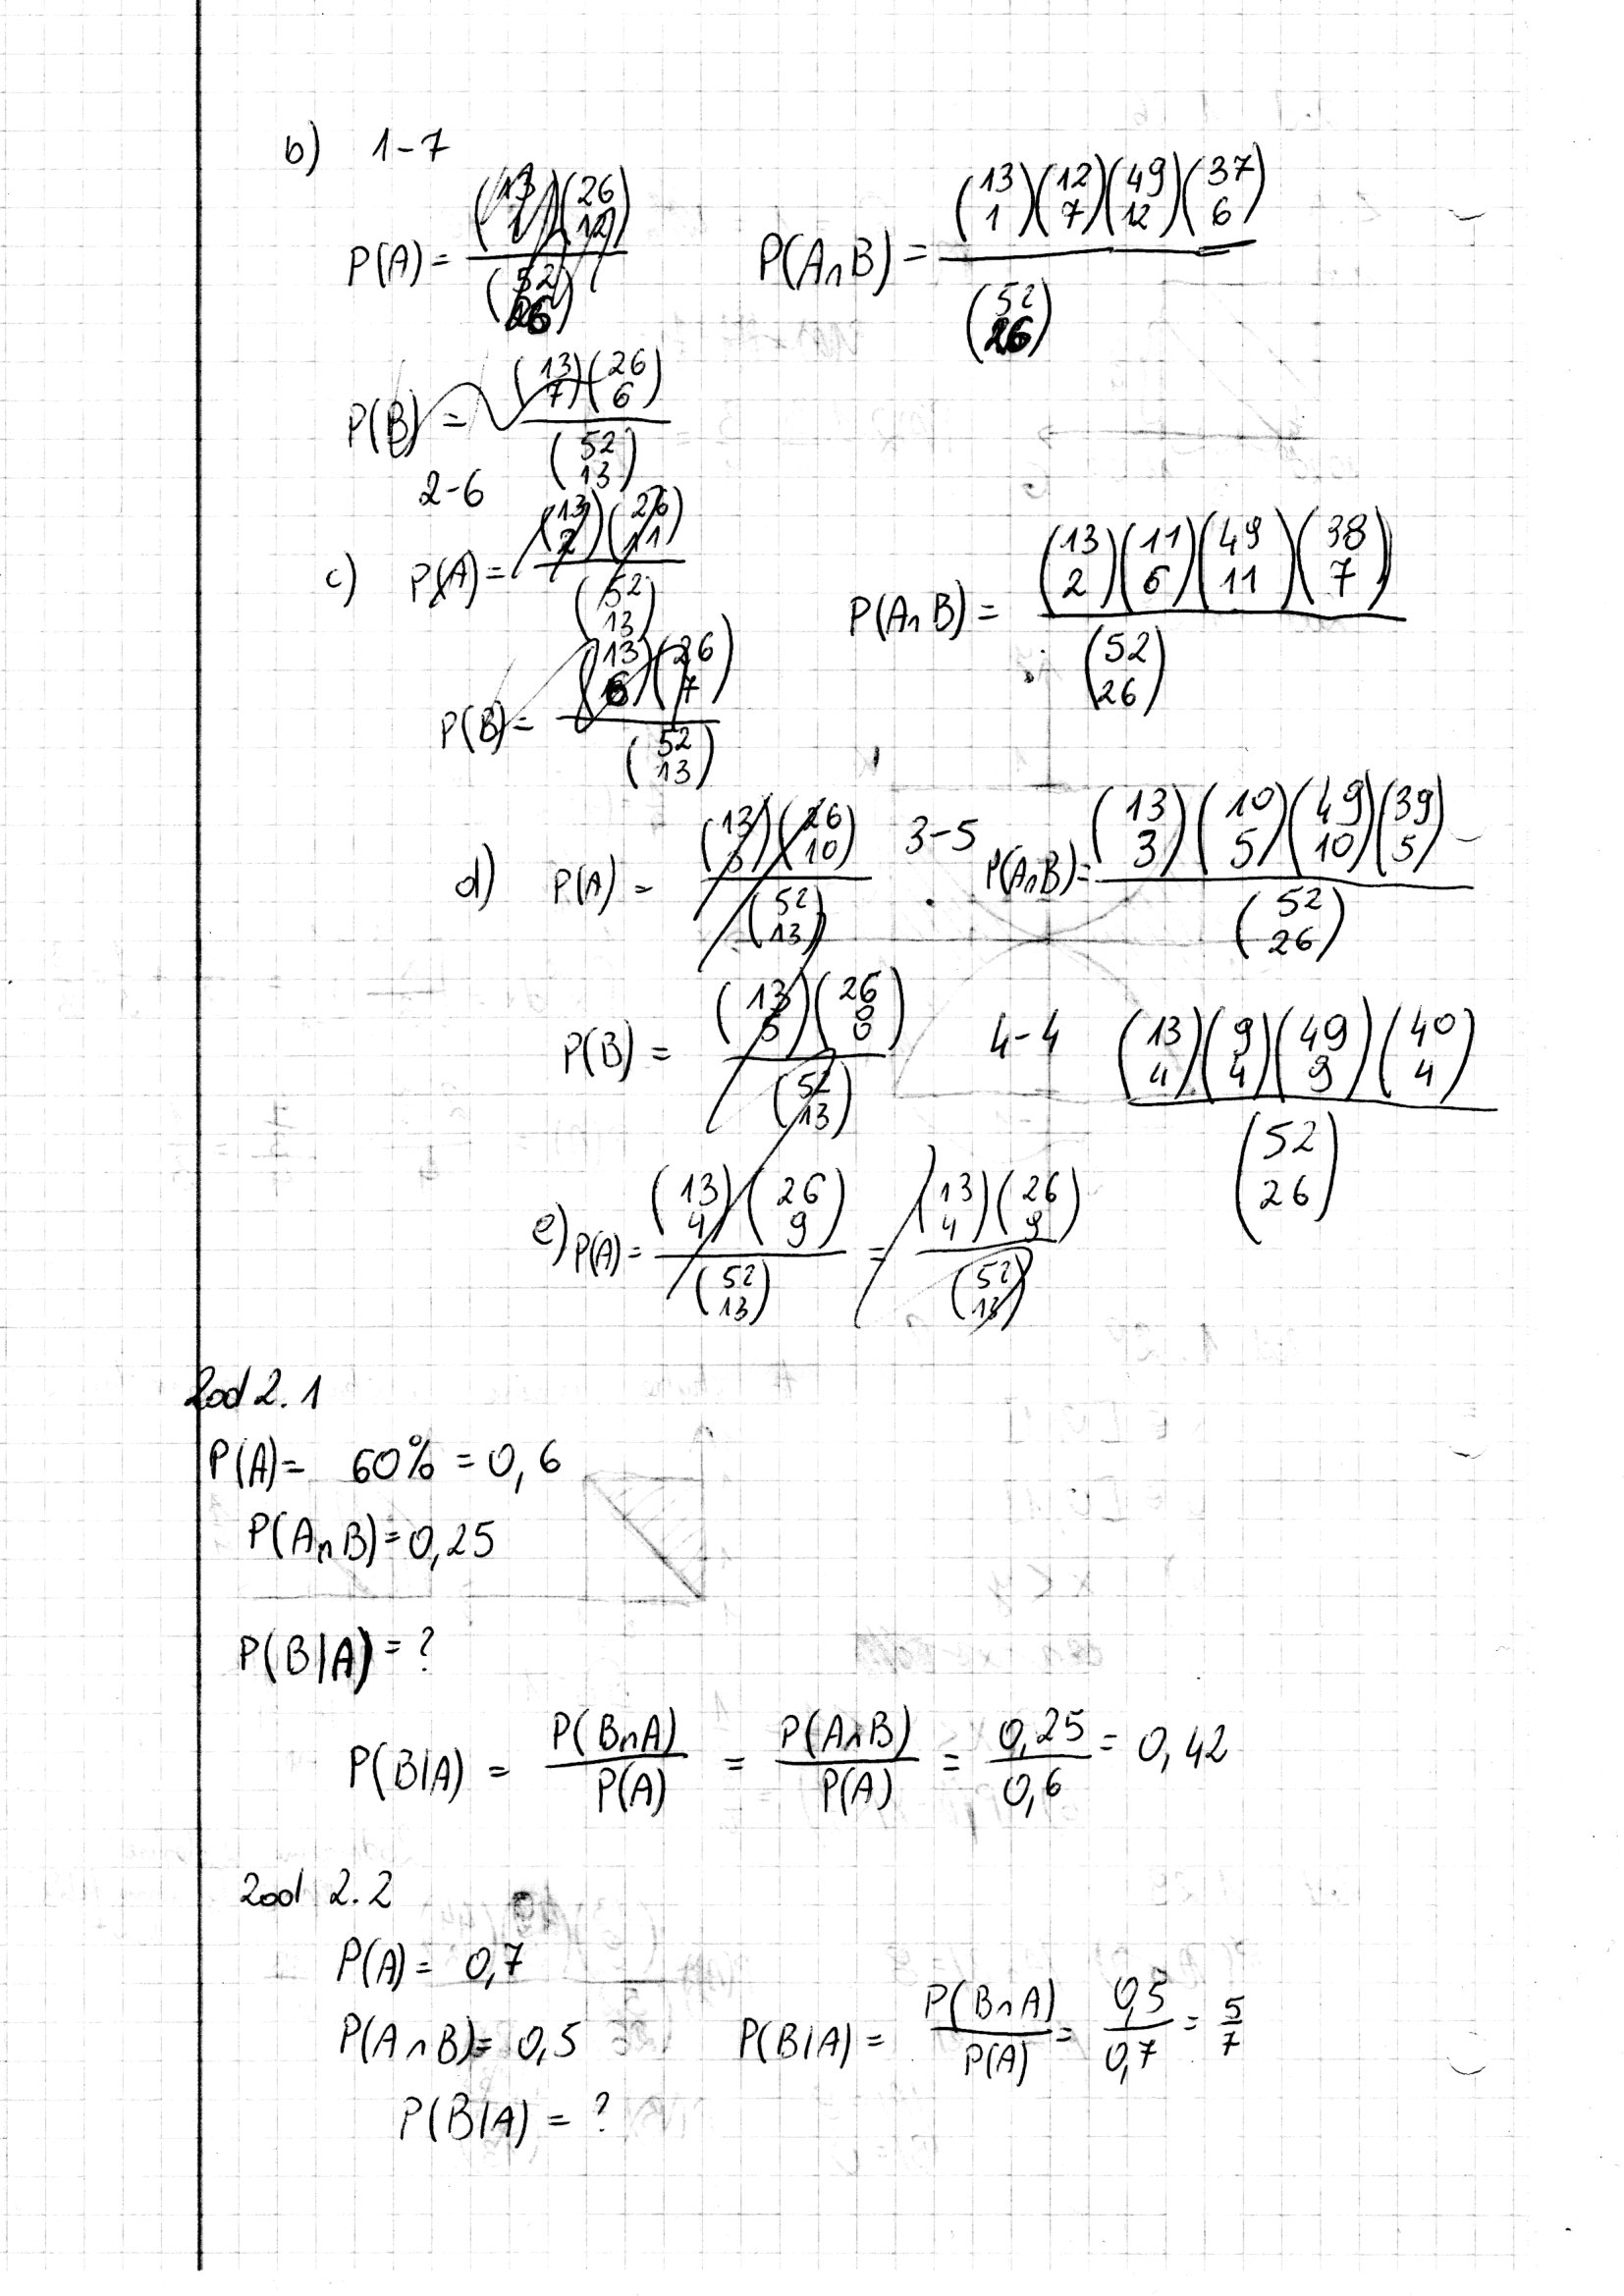 b) 1-7
P(A) = \frac{\binom{13}{1}\binom{26}{12}}{\binom{52}{26}}
P(A∩B) = \frac{\binom{13}{1}\binom{12}{7}\binom{49}{12}\binom{37}{6}}{\binom{52}{26}}
P(B) = \frac{\binom{13}{7}\binom{26}{6}}{\binom{52}{13}}
2-6
c) P(A) = \frac{\binom{13}{2}\binom{26}{11}}{\binom{52}{13}}
P(A∩B) = \frac{\binom{13}{2}\binom{11}{6}\binom{49}{11}\binom{38}{7}}{\binom{52}{26}}
P(B) = \frac{\binom{13}{6}\binom{26}{7}}{\binom{52}{13}}
d) P(A) = \frac{\binom{13}{3}\binom{26}{10}}{\binom{52}{13}}
3-5 P(A∩B) = \frac{\binom{13}{3}\binom{10}{5}\binom{49}{10}\binom{39}{5}}{\binom{52}{26}}
P(B) = \frac{\binom{13}{5}\binom{26}{8}}{\binom{52}{13}}
4-4 \frac{\binom{13}{4}\binom{9}{4}\binom{49}{9}\binom{40}{4}}{\binom{52}{26}}
e) P(A) = \frac{\binom{13}{4}\binom{26}{9}}{\binom{52}{13}} = \frac{\binom{13}{4}\binom{26}{9}}{\binom{52}{13}}
Zad 2.1
P(A) = 60% = 0,6
P(A∩B) = 0,25
P(B|A) = ?
P(B|A) = \frac{P(B∩A)}{P(A)} = \frac{P(A∩B)}{P(A)} = \frac{0,25}{0,6} = 0,42
Zad 2.2
P(A) = 0,7
P(A∩B) = 0,5
P(B|A) = \frac{P(B∩A)}{P(A)} = \frac{0,5}{0,7} = \frac{5}{7}
P(B|A) = ?